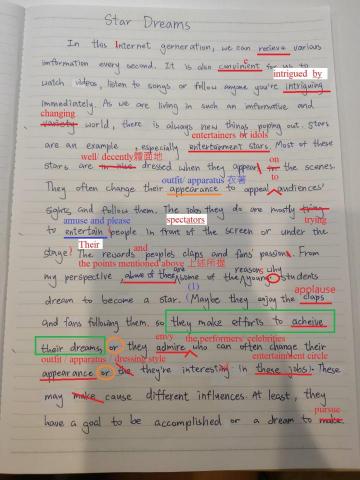 Star Dreams
In this Internet gerneration, we can recieve various
imformation every second. It is also convinient for us to
c
intrigued by
watch videos, listen to songs or follow anyone you're intriguing
immediately. As we are living in such an imformative and
changing
variety world, there is always new things poping out. Stars
entertainers or idols
are an example, especially entertainment stars. Most of these
well/ decently 體面地
on
stars are in nice dressed when they appear in the scenes.
outfit/ apparatus 衣著
to
They often change their appearance to appeal audiences'
sights and follow them. The jobs they do are mostly trying
amuse and please
spectators
trying
to entertain people in front of the screen or under the
Their
and
stage? The rewards peoples claps and fans' passion. From
the points mentioned above 上述所提
are
reasons why
my perspective, above of these some of the young students
(1)
applause
dream to become a star. (Maybe they enjoy the claps
and fans following them. so they make efforts to acheive
envy
the performers'/ celebrities'
their dreams, or they admire who can often change their
outfit / apparatus / dressing style
entertainment circle
appearance or the they're interesting in these jobs). These
may make cause different influences. At least, they
pursue
have a goal to be accomplished or a dream to make.